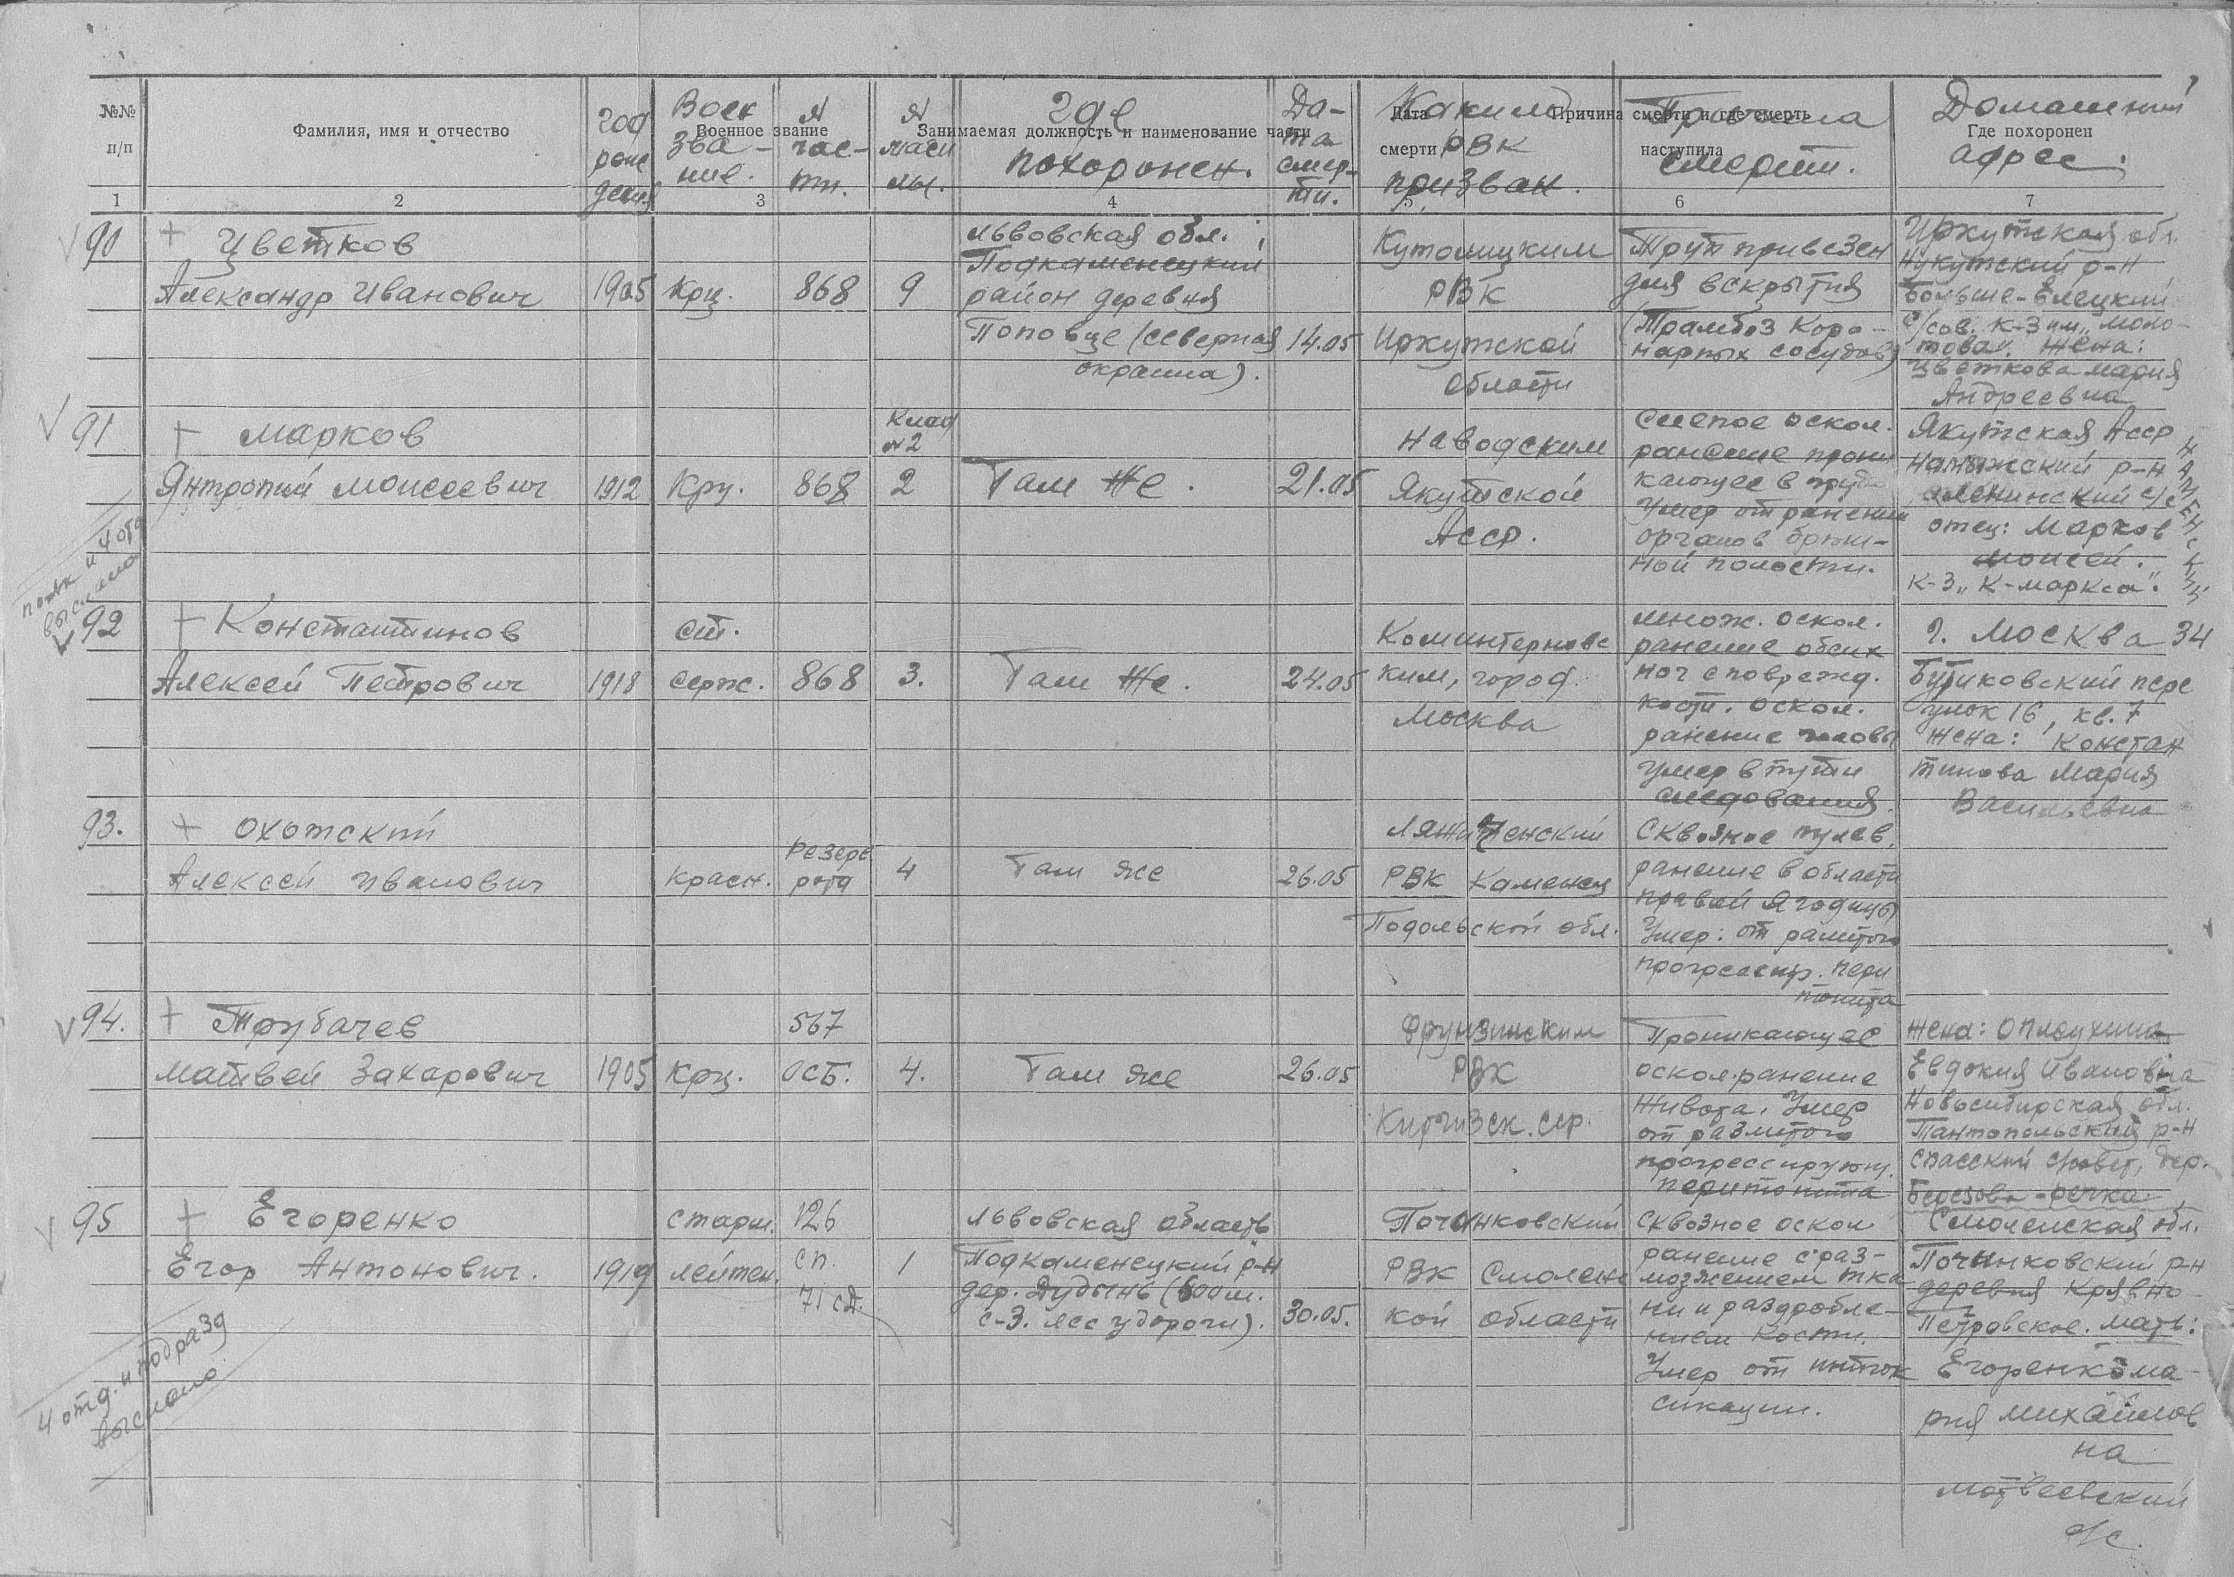 №№ п/п
Фамилия, имя и отчество
Год рождения
Военное звание
Воен звание.
N части.
N могилы.
Занимаемая должность и наименование части
где похоронен.
Дата смерти.
Дата смерти
Каким РВК призван.
Причина смерти и где смерть наступила
Причина смерти.
Где похоронен
Домашний адрес.
1 2 3 4 5 6 7
90 + Цветков
Александр Иванович
1905
Крц.
868
9
Львовская обл.
Подкаменецкий
район деревня
Поповце (северная
окраина).
14.05
Кутолицким
РВК
Иркутской
области
Труп привезен
для вскрытия
(Трамбоз коро-
нарных сосудов)
Иркутская обл.
Нукутский р-н
Больше-Елецкий
с/сов. к-з им. "Моло-
това". Жена:
Цветкова Мария
Андреевна
91 + Марков
Янтропий Моисеевич
1912
Крц.
868
Клад
N2
2
Там же.
21.05
Наводским
Якутской
Асср.
Слепое оскол.
ранение прони
кающее в груд
Умер от ранения
органов брюш-
ной полости.
Якутская Асср
Намыжский р-н
отец: Марков
Моисей.
к-з "К-Маркса".
полк и 4 отд
выслано
92 + Константинов
Алексей Петрович
1918
ст.
серж.
868
3.
Там же.
24.05
Коминтерновс
ким, город
Москва
множ. оскол.
ранение обеих
ног с поврежд.
кости. оскол.
ранение головы
Умер в пути
следования.
г. Москва 34
Бутиковский пере
улок 16, кв. 7
жена: Констан
тинова Мария
Васильевна
93. + Охотский
Алексей Иванович
красн.
Резерв
рота
4
Там же
26.05
РВК Каменец
Подольской обл.
Сквозное пулев.
ранение в области
правой ягодицы
Умер: от разлитого
прогрессир. пери
тонита
94. + Трубачев
Матвей Захарович
1905
Крц.
567
ОСБ.
4.
Там же
26.05
Фрунзинским
РВК
Киргизск. сср.
Проникающее
оскол. ранение
живота. Умер
от разлитого
прогрессирующ.
перитонита
Жена: Оплеухина
Евдокия Ивановна
Новосибирская обл.
Тантопольский р-н
Спасский с/совет, дер.
Березова-речка
95 + Егоренко
Егор Антонович.
1919
старш.
лейтен.
126
сп.
71 сд.
1
Львовская область
Подкаменецкий р-н
дер. Дудынь (600 м.
с-з. лес у дороги).
30.05.
Починковский
РВК Смоленс
кой области
Сквозное оскол
ранение с раз-
мозжением тка
ни и раздробле-
нием кости.
Умер от инток
сикации.
Смоленская обл.
Починковский р-н
деревня Крявно-
Петровское. мать:
Егоренко Ма-
рия Михайлов
на
Матвеевский
с/с.
4 отд. и подразд
выслано